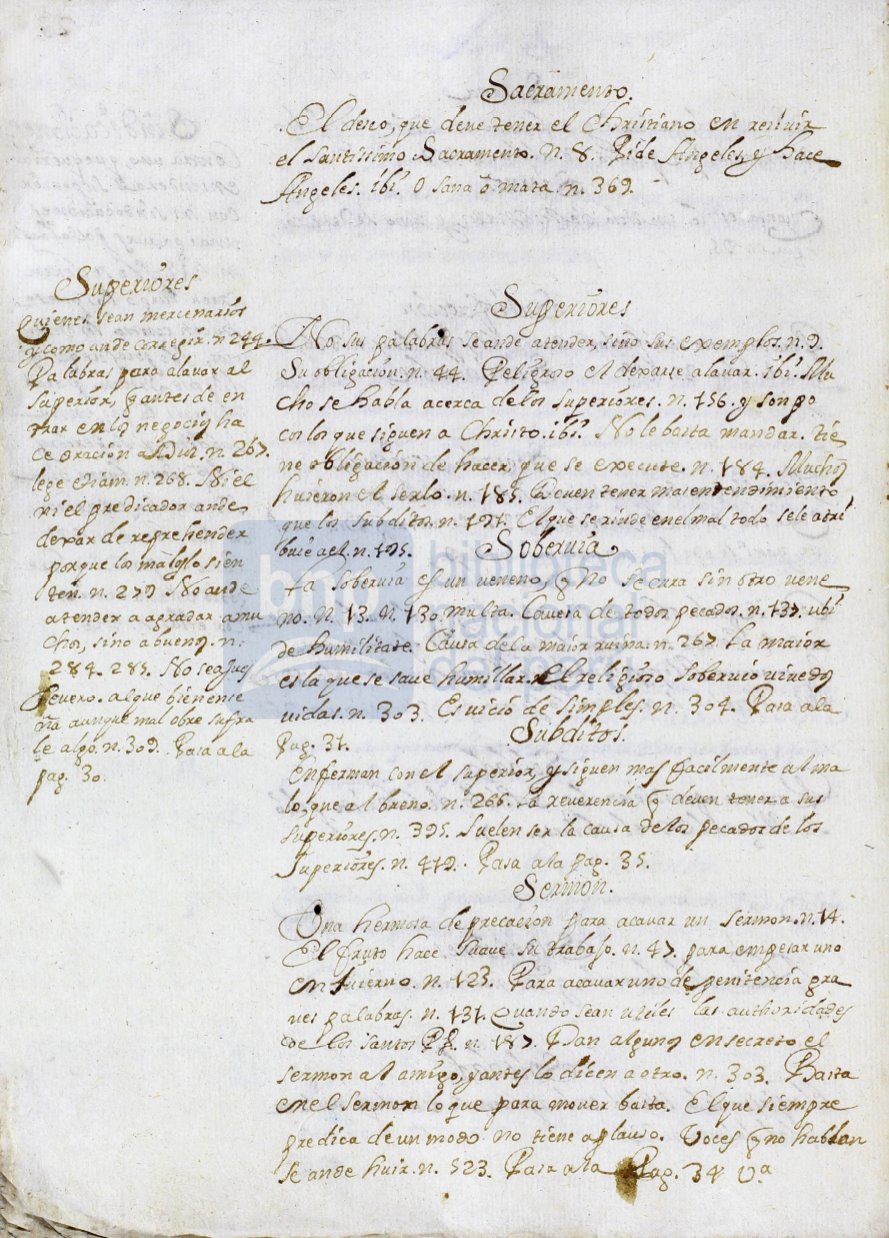 Sacramento.
El deseo, que deve tener el Christiano en resiuir
el santissimo Sacramento. n. 8. Pide Angeles, y hace
Angeles. ibi. O sana o mata. n. 369.
Superiores
Quienes sean mercenarios
y como ande corregir. n 244.
Palabras para alauar al
superior, q antes de en
trar en los negocios ha
ce oración a Dios. n. 267.
lege etiam. n. 268. Ni el
ni el predicador ande
dexar de reprehender
porque los malos lo sien
ten. n. 279 No ande
atender a agradar a mu
chos, sino a buenos. n.
284. 285. No sea jues
seuero. al que bien ense
ña aunque mal obre sufra
le algo. n. 309. Pasa a la
pag. 30.
Superiores
No sus palabras se ande atender, sino sus exemplos. n. 9.
Su obligación. n. 44. Peligroso el dexarse alauar. ibi. Mu
cho se habla acerca de los superiores. n. 156. y son po
cos los que siguen a Christo. ibi. No le basta mandar. tie
ne obligación de hacer, que se execute. n. 184. Muchos
huieron el serlo. n. 185. Deuen tener mas entendimiento
que los subditos. n. 191. El que se rinde en el mal todo se le atri
buie a el. n. 195.
Soberuia
La soberuia es un veneno, q no se cura sin otro vene
no. n. 13. n. 130. multa. Causa de todos pecados. n. 137. ubi
de humilitate. Causa de la maior ruina. n. 267. La maior
es la que se saue humillar. El religioso soberuio viue dos
vidas. n. 303. Es vició de simples. n. 304. Pasa a la
Pag. 31.
Subditos.
Enferman con el superior, y siguen mas facilmente al ma
lo, que al bueno. n. 266. La reuerencia q deuen tener a sus
superiores. n. 395. Suelen ser la causa de los pecados de los
superiores. n. 419. Pasa a la pag. 35.
Sermon.
Una hermosa deprecación para acauar un sermon. n. 14.
El fruto hace suaue su trabajo. n. 47. para empesar uno
en Infierno. n. 123. Para acauar uno de penitencia gra
ues palabras. n. 131. Quando sean utiles las authoridades
de los santos PP. n. 187. Dan algunos en secreto el
sermon al amigo, y antes lo dicen a otro. n. 303. Basta
en el sermon lo que para mouer basta. El que siempre
predica de un modo no tiene aplauso. Voces q no hablan
se ande huir. n. 523. Pasa a la Pag. 34 va
biblioteca
nacional
del perú